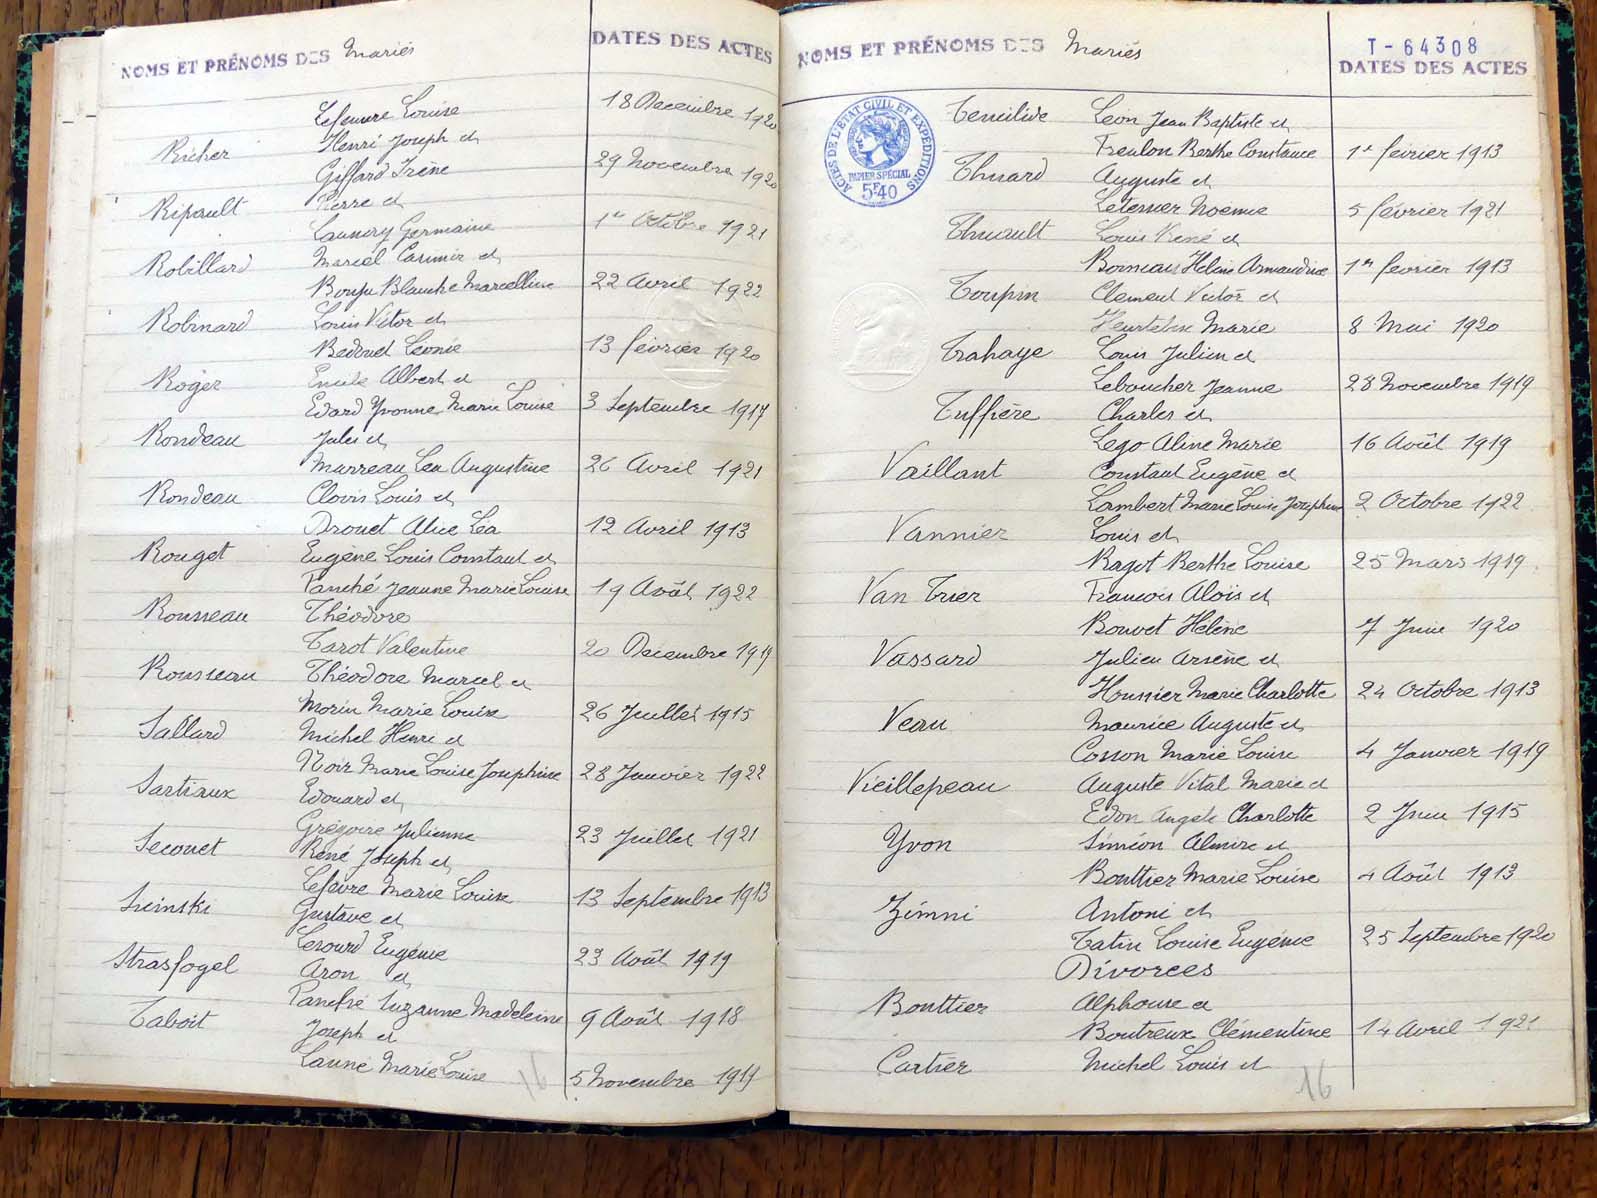 NOMS ET PRÉNOMS DES Mariés DATES DES ACTES
Lefeuvre Louise 18 Decembre 1920
Richer Henri Joseph et
Giffard Irène 29 Novembre 1920
Ripault Pierre et
Launay Germaine 1er Octobre 1921
Robillard Marcel Casimir et
Bouju Blanche Marcelline 22 Avril 1922
Robinard Louis Victor et
Bedouet Léonie 13 février 1920
Roger Emile Albert et
Evard Yvonne Marie Louise 3 Septembre 1917
Rondeau Jules et
Marreau Lea Augustine 26 Avril 1921
Rondeau Clovis Louis et
Drouet Alice Léa 12 Avril 1913
Rouget Eugène Louis Constant et
Fanché Jeanne Marie Louise 19 Août 1922
Rousseau Théodore
Tarot Valentine 20 Decembre 1919
Rousseau Théodore Marcel et
Morin Marie Louise 26 Juillet 1915
Sallard Michel Henri et
Noir Marie Louise Josephine 28 Janvier 1922
Sartiaux Edouard et
Grégoire Julienne 23 Juillet 1921
Secouet René Joseph et
Lefèvre Marie Louise 13 Septembre 1913
Gustave et
Lesourd Eugénie 23 Août 1919
Strasfogel Aron et
Suzanne Madeleine 9 Août 1918
Taboit Joseph et
Launé Marie Louise 5 Novembre 1919
16
T-64308
NOMS ET PRÉNOMS DES Mariés DATES DES ACTES
ACTES DE L'ÉTAT CIVIL ET EXPÉDITIONS
PAPIER SPÉCIAL
5F40
Léon Jean Baptiste et
Freulon Berthe Constance 1er février 1913
Thuard Auguste et
Letessier Noémie 5 février 1921
Thuault Louis René et
Hélène Armandine 1er février 1913
Toupin Clement Victor et
Heurtebise Marie 8 Mai 1920
Trahaye Louis Julien et
Leboucher Jeanne 28 Novembre 1919
Tuffière Charles et
Lego Aline Marie 16 Août 1919
Vaillant Constant Eugène et
Lambert Marie Louise Josephine 2 Octobre 1922
Vannier Louis et
Ragot Berthe Louise 25 Mars 1919
Van Trier François Aloïs et
Bouvet Hélène 7 Juin 1920
Vassard Julien Arsène et
Houssier Marie Charlotte 24 Octobre 1913
Veau Maurice Auguste et
Cosson Marie Louise 4 Janvier 1919
Vieillepeau Auguste Vital Marie et
Edon Angèle Charlotte 2 Juin 1915
Yvon Siméon Almire et
Bouttier Marie Louise 4 Août 1913
Zimni Antoni et
Tatin Louise Eugénie 25 Septembre 1920
Divorces
Bouttier Alphonse et
Boutreux Clémentine 14 Avril 1921
Cartier Michel Louis et
16